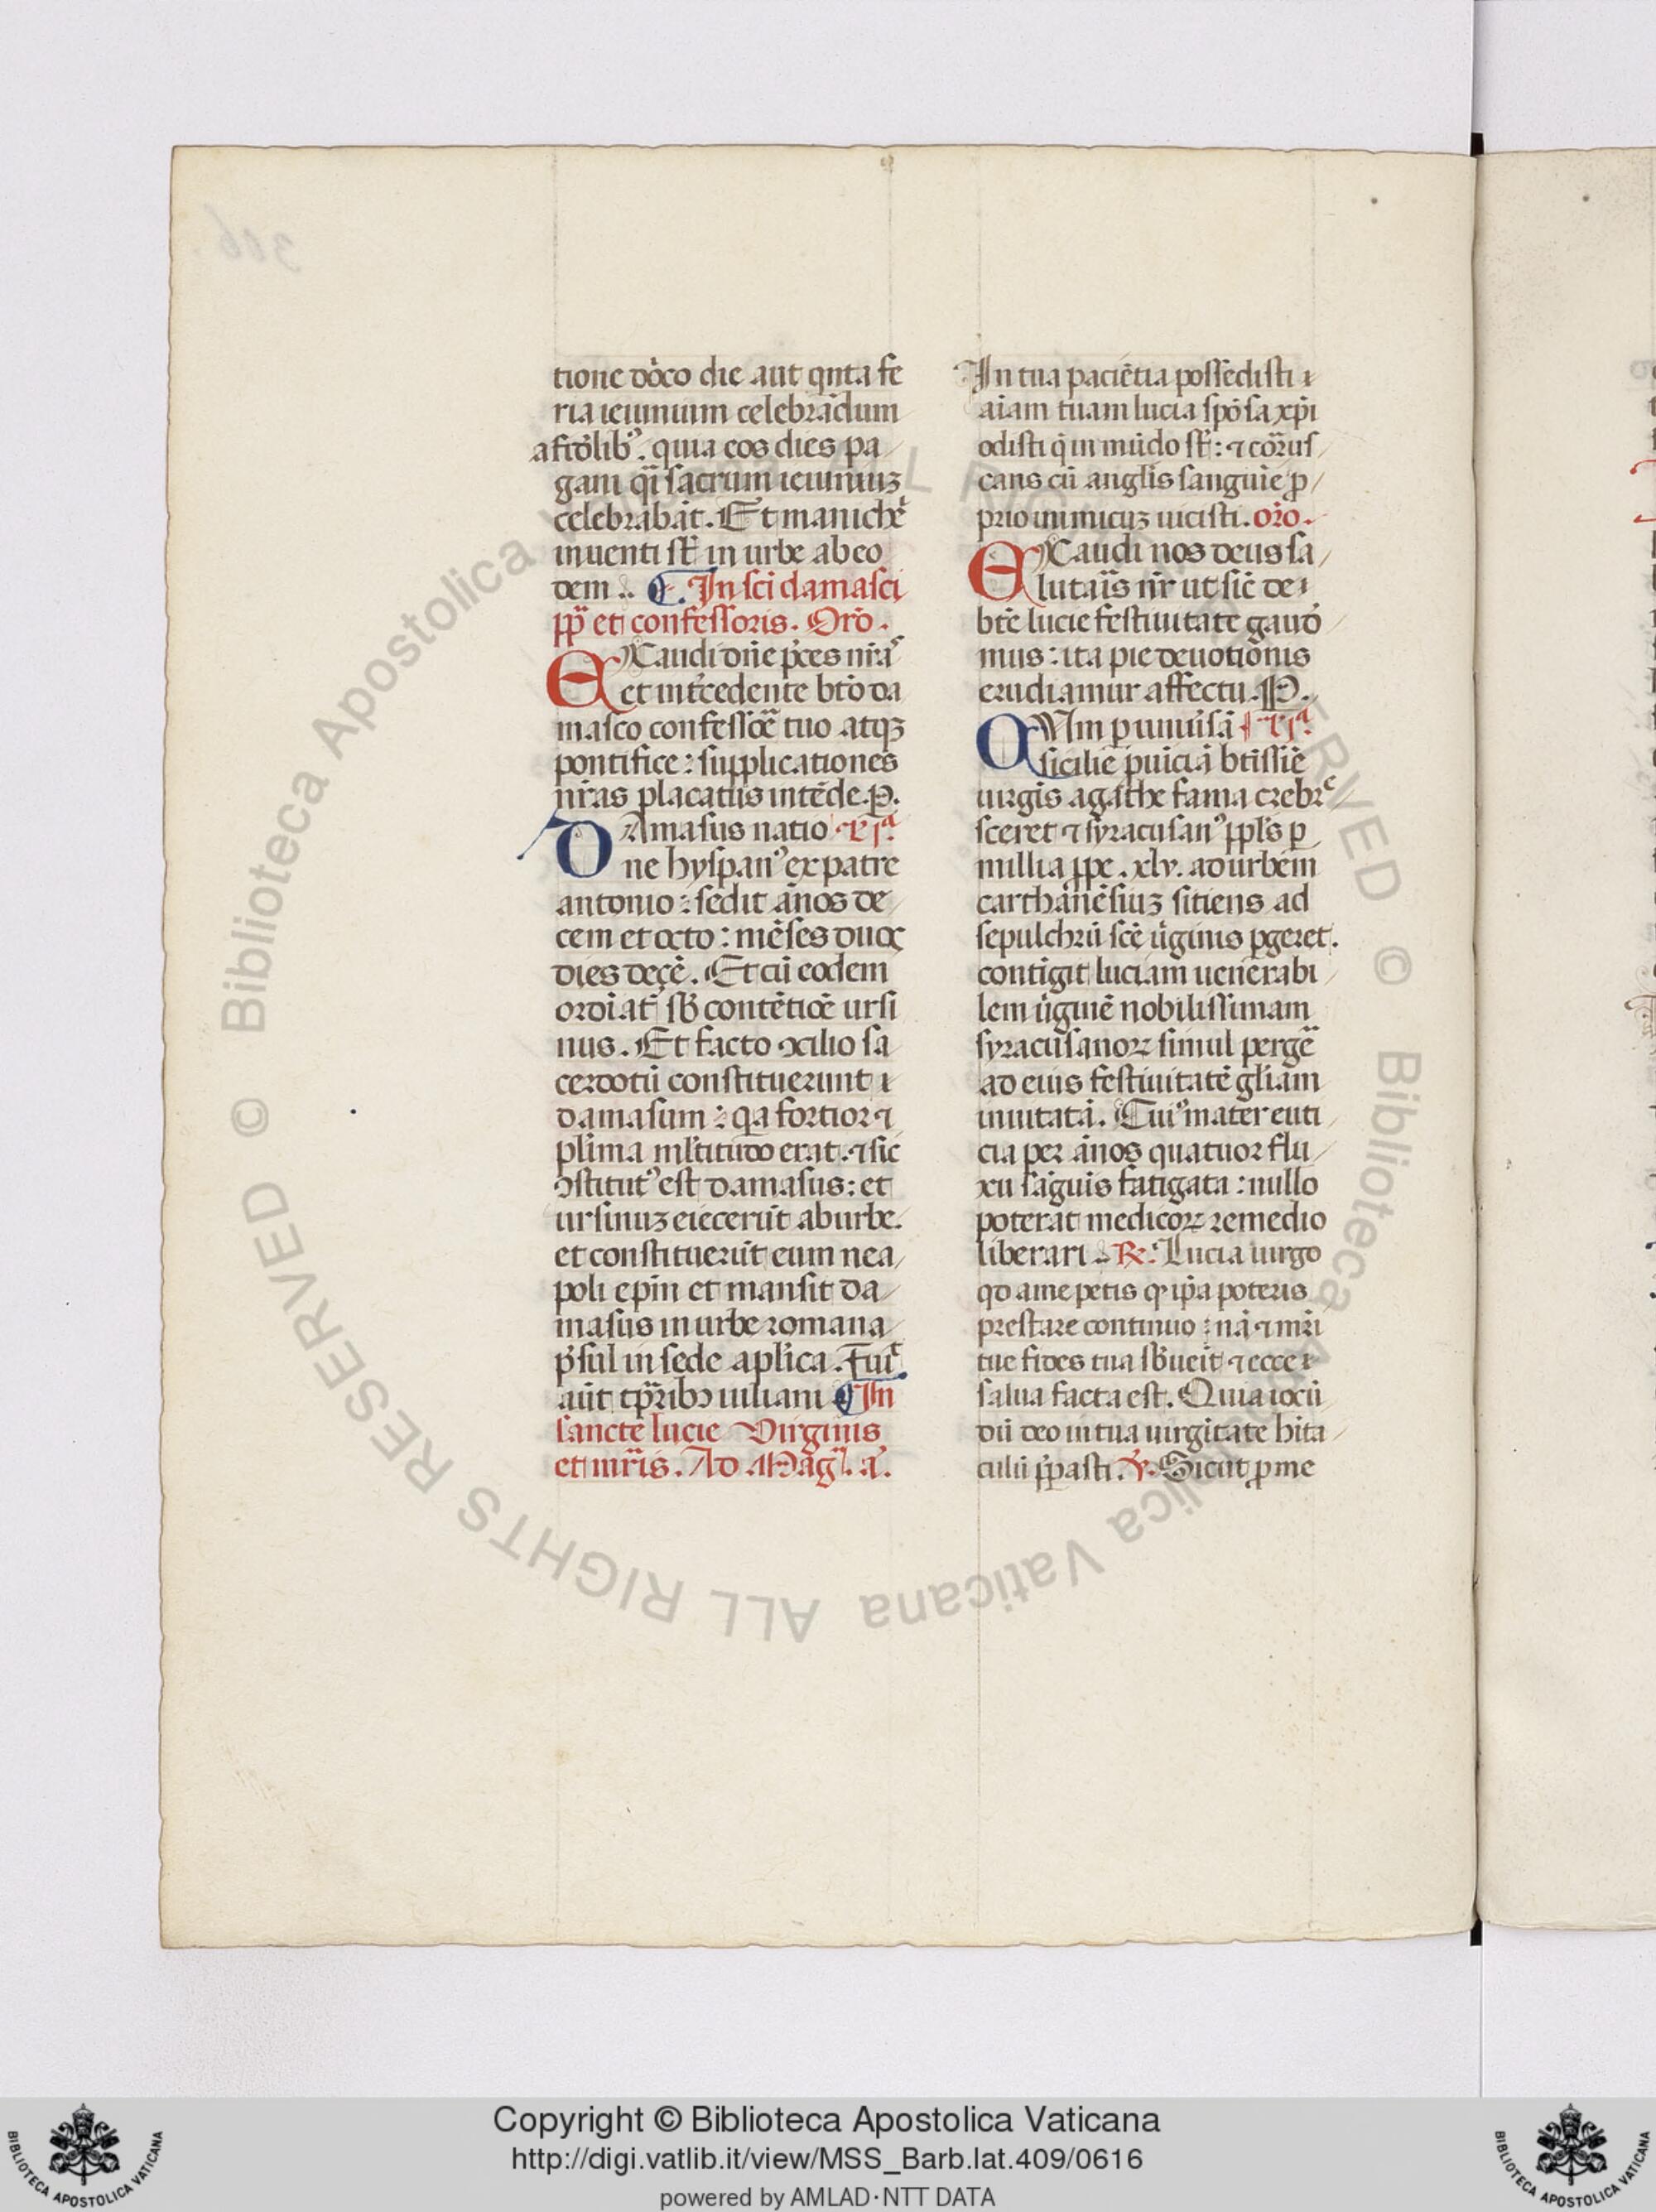 tione dn̄ico die aut qnta fe
ria ieiunium celebrādum
a fidelibꝰ. quia eos dies pa
gani q̄i sacrum ieiuniuʒ
celebrabāt. Et maniche͛
inuenti st̄ in urbe ab eo
dem .. ¶ In sc̄i damasci
pp̄ et confessoris. Orō.
EXaudi dn̄e p̄ces nr̄aˢ
et int̄cedente bt̄o da
masco confessōe tuo atqʒ
pontifice : supplicationes
nr̄as placatus intēde. P.
DAmasus natio
ne hyspanꝰ ex patre
antonio : sedit ānos de
cem et octo : mēses duos
dies decē. Et cū eodem
ordīatꝰ sb̄ contētiōe ursi
nus. Et facto ꝯcilio sa
cerdotū constituerunt
damasum : q̄a fortior ⁊
pl̄ima ml̄titudo erat. ⁊ sic
ꝯstitutꝰ est damasus : et
ursinuʒ eiecerūt ab urbe.
et constituerūt eum nea
poli ep̄m et mansit da
masus in urbe romana
p̄sul in sede apl̄ica. Fuiᵗ
aūt tp̄ribꝰ iuliani ¶ In
sancte lucie Virginis
et mr̄is. Ad Maḡ. a͛.
In tua paciētia possedisti
aīam tuam lucia spōsa xp̄i
odisti q̄ in mūdo st̄ : ⁊ cōrus
cans cū angl̄is sanguīe ꝓ
prio inimicuʒ uicisti. orō.
EXaudi nos deus sa
lutāis nr̄ ut sic̄ de
bt̄e lucie festiuitate gaudē
mus : ita pie deuotionis
erudiamur affectu. P.
QUm p uniu͛sā
sicilie ꝓuīciā bt̄issīe
uirgīs agathe fama crebrᵉ
sceret ⁊ syracusanꝰ ppl̄s p
millia ppe. xlv. ad urbem
carthānēsiuʒ sitiens ad
sepulchrū sc̄e u͛ginis pgeret.
contigit luciam uenerabi
lem u͛ginē nobilissimam
syracusanoꝝ simul pergē
ad eius festiuitatē gl̄iam
inuitatā. Cuiꝰ mater euti
cia per ānos quatuor flu
xu sāguis fatigata : nullo
poterat medicoꝝ remedio
liberari .. ℞. Lucia uirgo
qd a me petis qᵈ ip̄a poteris
prestare continuo : nā ⁊ mr̄i
tue fides tua sb̄ueīt ⁊ ecce
salua facta est. Quia iocū
dū deo in tua uirgītate hita
culū p̄parasti. ℣. Sicut ꝑ me
Copyright © Biblioteca Apostolica Vaticana
http://digi.vatlib.it/view/MSS_Barb.lat.409/0616
powered by AMLAD·NTT DATA